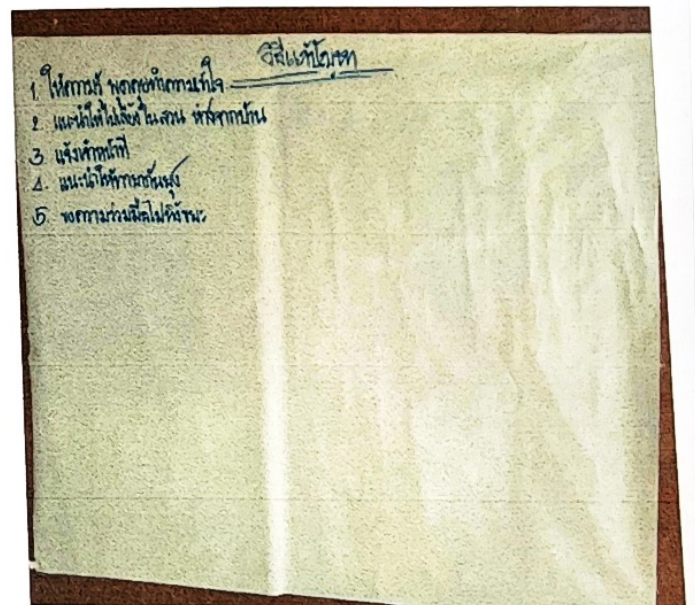 วิธีแก้ปัญหา
1. ให้ความรู้ พูดคุยทำความเข้าใจ
2. แนะนำให้ไปเลี้ยงในสวน ห่างจากบ้าน
3. แจ้งเจ้าหน้าที่
4. แนะนำให้ทายากันยุง
5. ขอความร่วมมือไม่ทิ้งขยะ